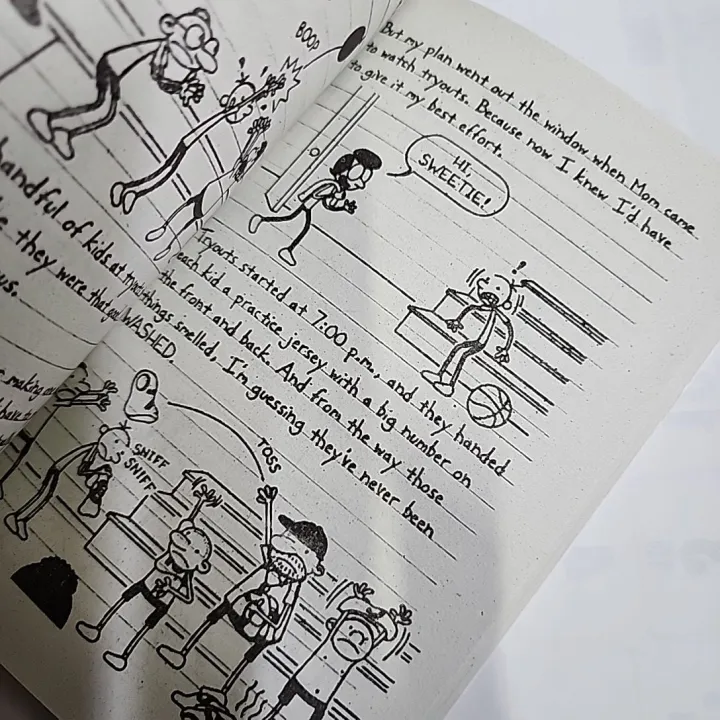 BOOP
handful of kids at
they were that
WASHED.
us.
making
But my plan went out the window when Mom came
to watch tryouts. Because now I knew I'd have
to give it my best effort.
HI,
SWEETIE!
!
Tryouts started at 7:00 p.m., and they handed
each kid a practice jersey with a big number on
the front and back. And from the way those
things smelled, I'm guessing they've never been
SNIFF
SNIFF
TOSS